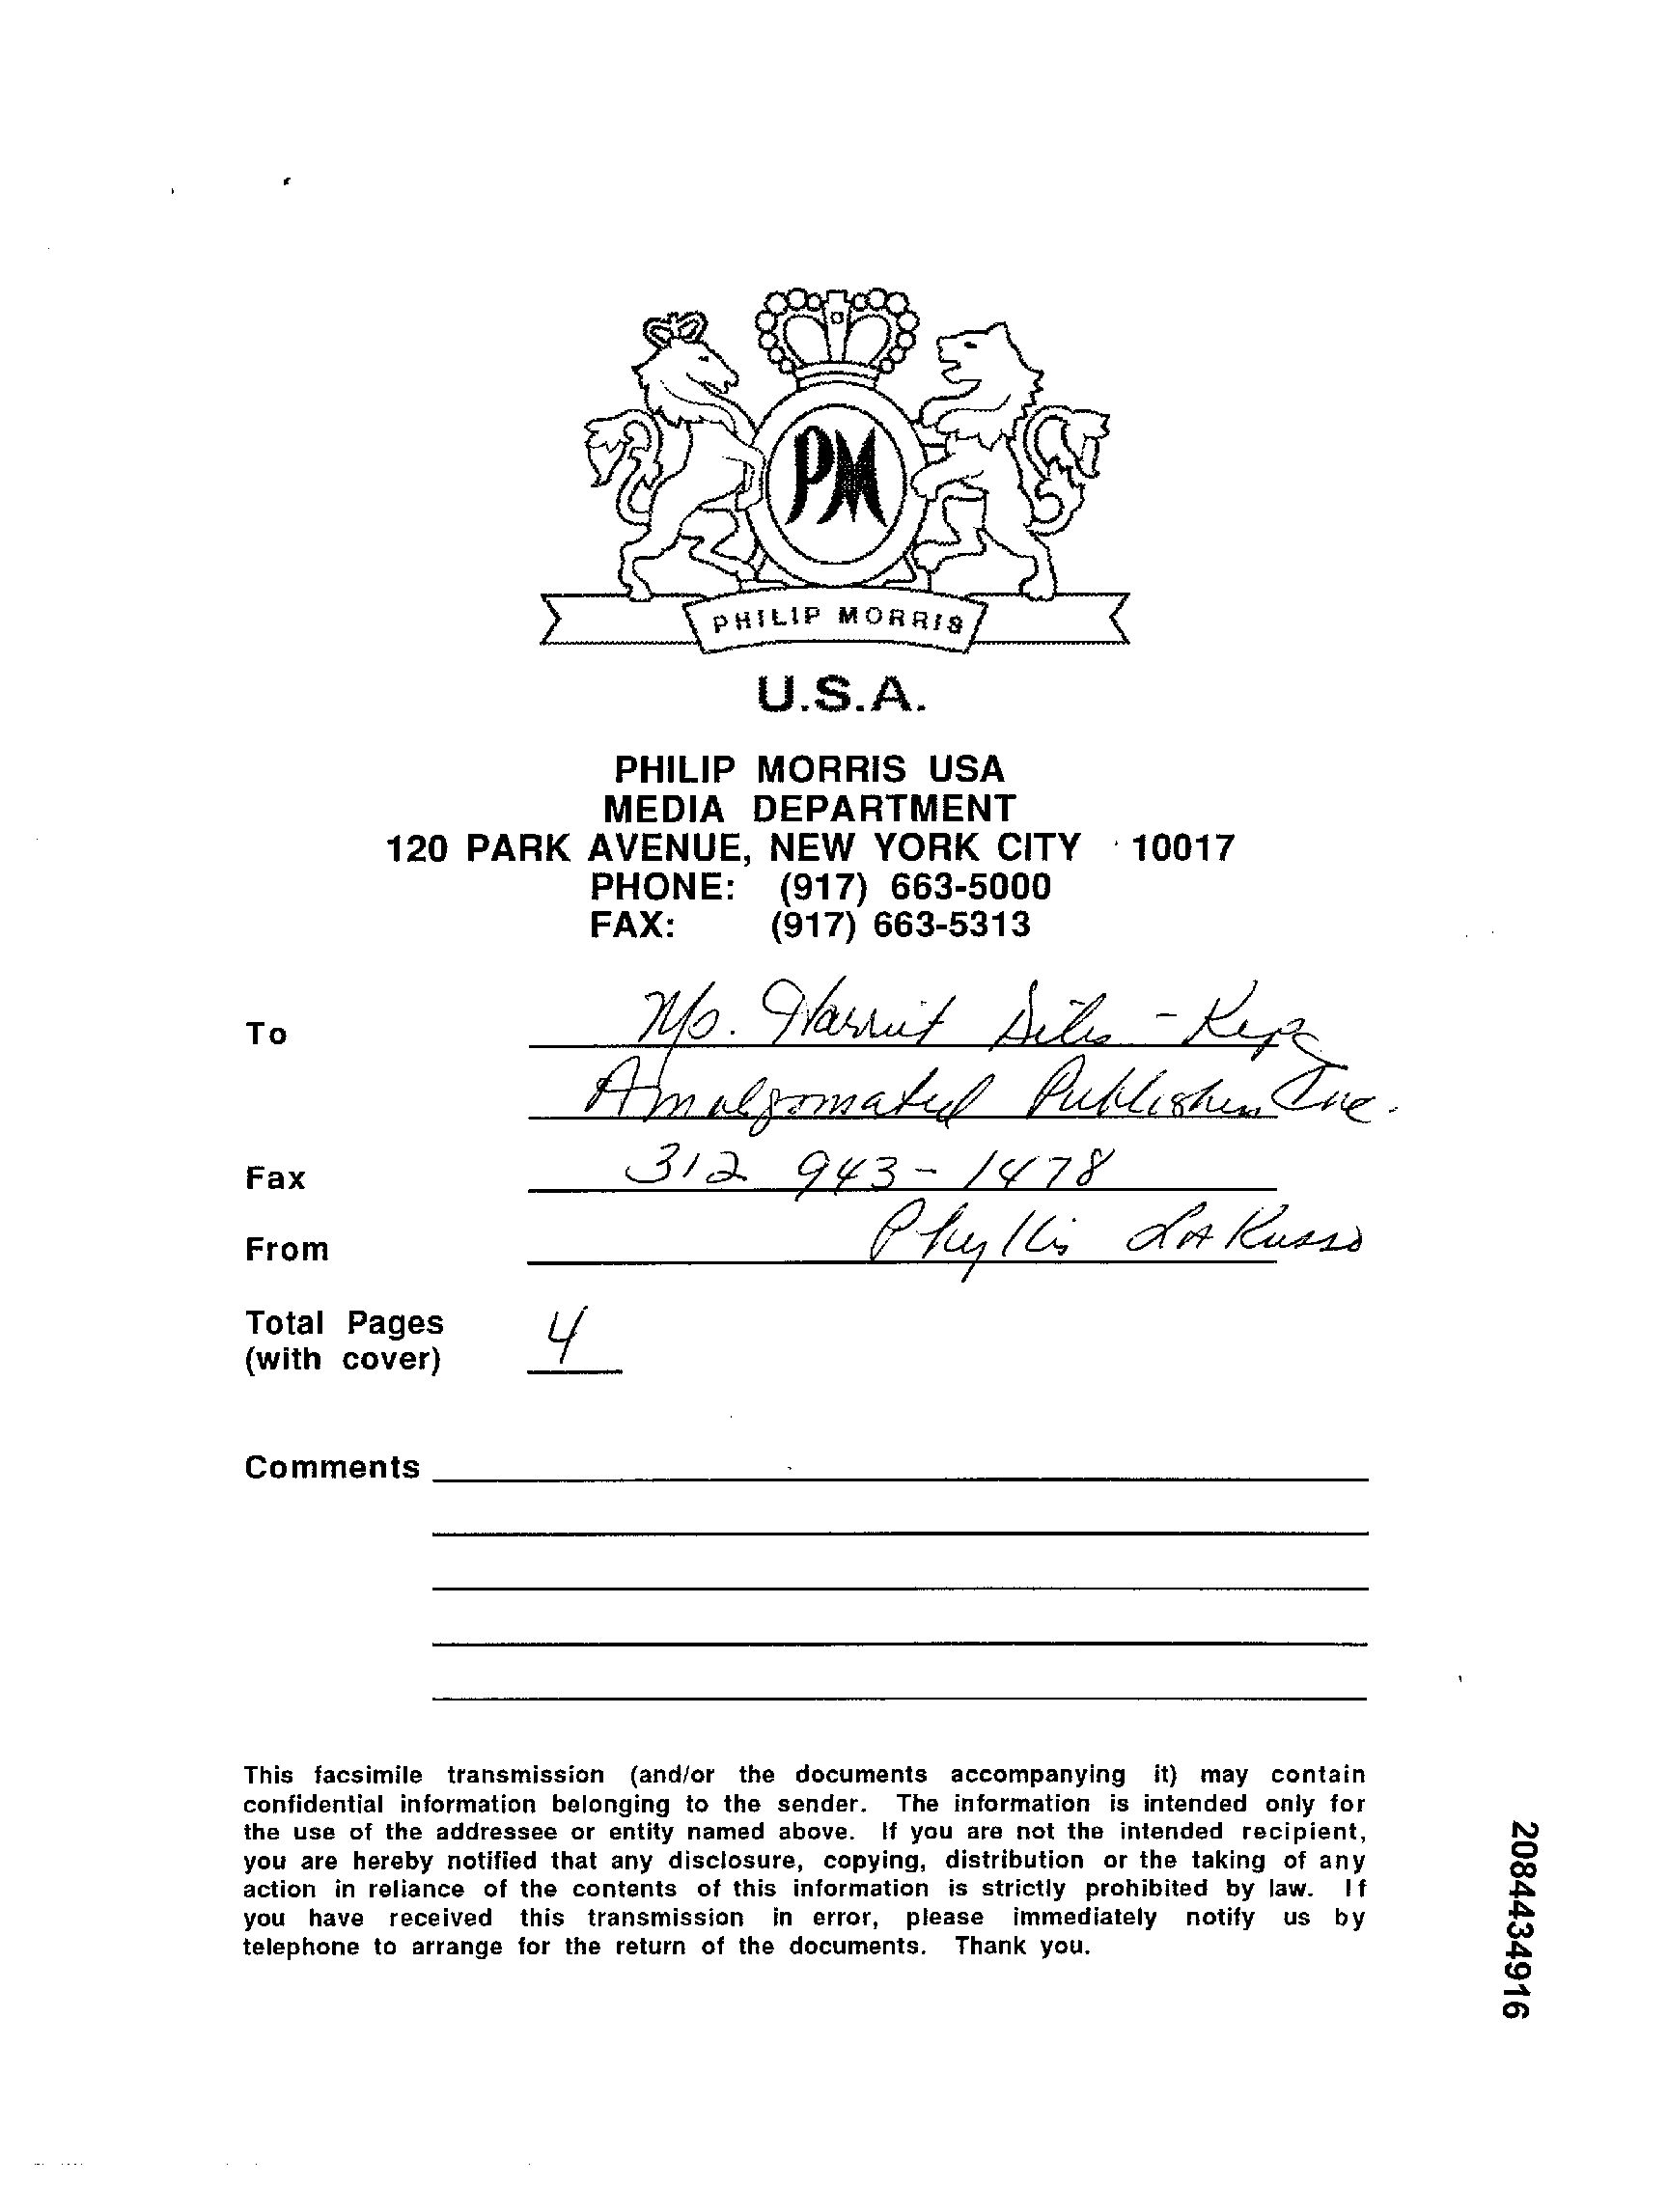 PM
PHILIP MORRIS
U.S.A.
PHILIP MORRIS USA
MEDIA DEPARTMENT
120 PARK AVENUE, NEW YORK CITY 10017
PHONE: (917) 663-5000
FAX: (917) 663-5313
To Ms.
Amalgomated Publishers Inc.
Fax 312 943-1478
From Phyllis LaRusso
Total Pages 4
(with cover)
Comments
This facsimile transmission (and/or the documents accompanying it) may contain
confidential information belonging to the sender. The information is intended only for
the use of the addressee or entity named above. If you are not the intended recipient,
you are hereby notified that any disclosure, copying, distribution or the taking of any
action in reliance of the contents of this information is strictly prohibited by law. If
you have received this transmission in error, please immediately notify us by
telephone to arrange for the return of the documents. Thank you.
2084434916